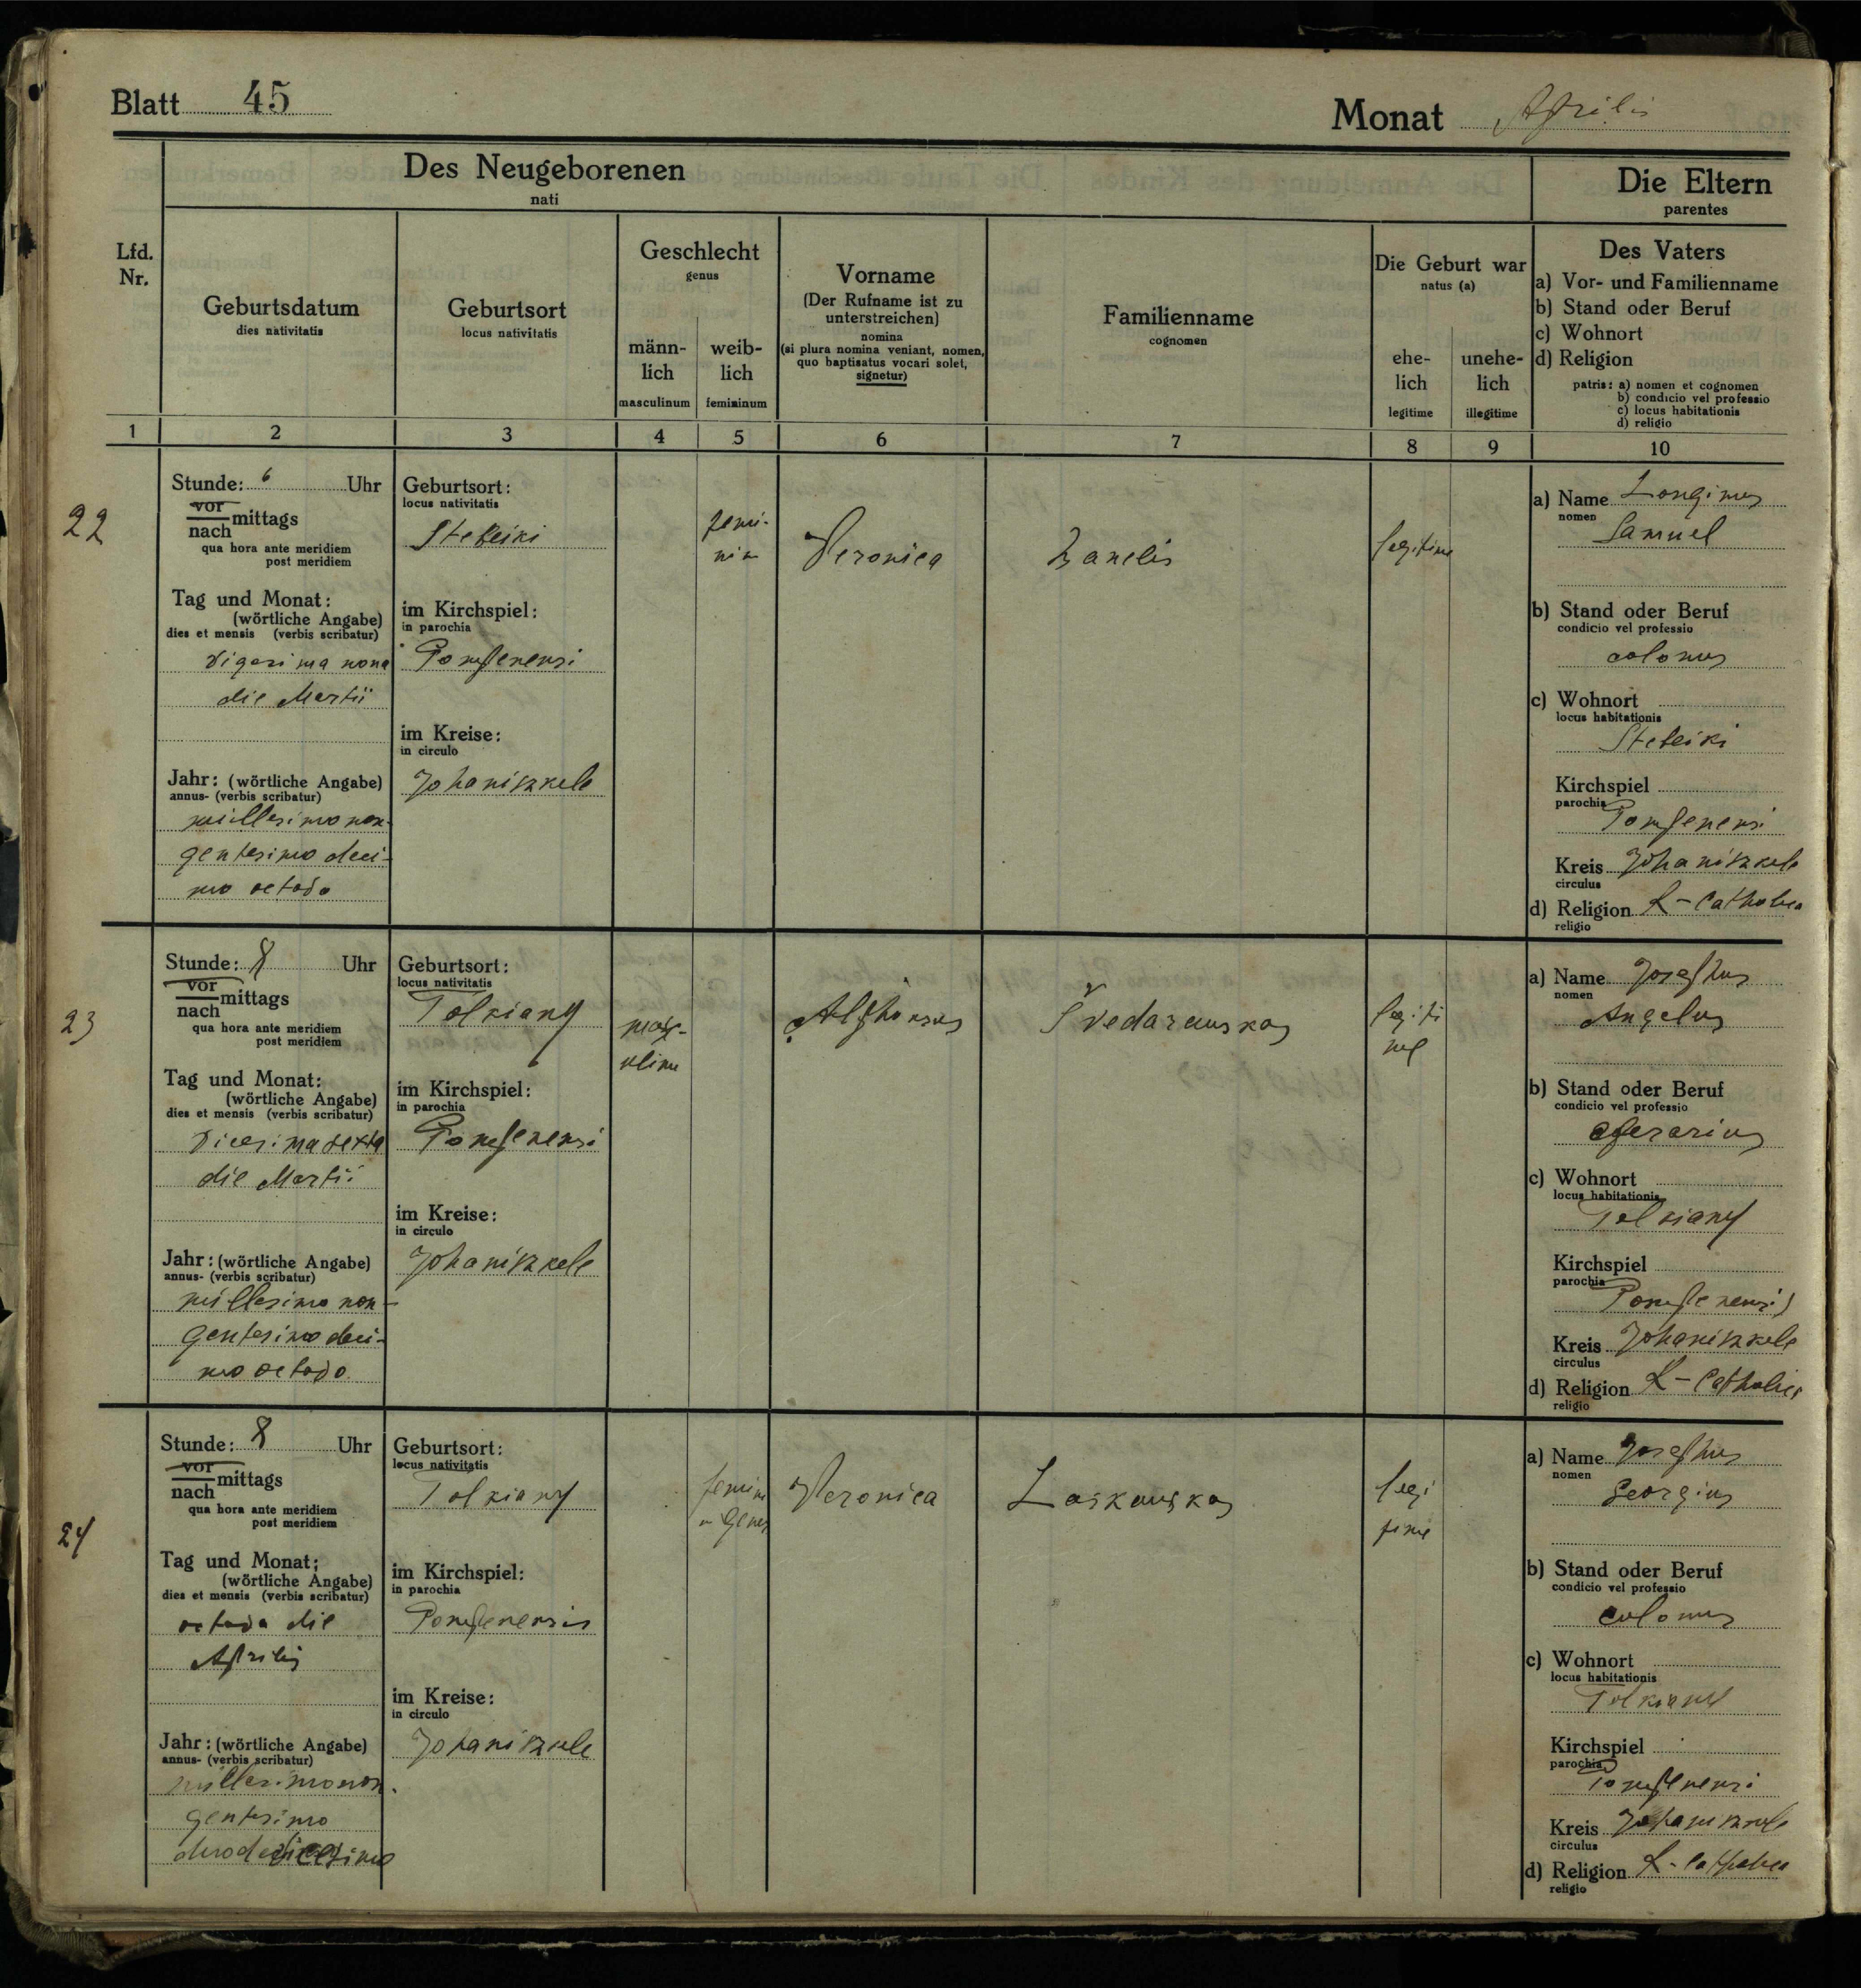 Blatt 45
Monat Aprilis
Des Neugeborenen
nati
Die Eltern
parentes
Lfd.
Nr.
Geburtsdatum
dies nativitatis
Geburtsort
locus nativitatis
Geschlecht
genus
männ-
lich
masculinum
weib-
lich
femininum
Vorname
(Der Rufname ist zu
unterstreichen)
nomina
(si plura nomina veniant, nomen,
quo baptisatus vocari solet,
signetur)
Familienname
cognomen
Die Geburt war
natus (a)
ehe-
lich
legitime
unehe-
lich
illegitime
Des Vaters
a) Vor- und Familienname
b) Stand oder Beruf
c) Wohnort
d) Religion
patris: a) nomen et cognomen
b) condicio vel professio
c) locus habitationis
d) religio
1 2 3 4 5 6 7 8 9 10
22
Stunde: 6 Uhr
vor
nach mittags
qua hora ante meridiem
post meridiem
Tag und Monat:
(wörtliche Angabe)
dies et mensis (verbis scribatur)
vigesima nona
die Martii
Jahr: (wörtliche Angabe)
annus- (verbis scribatur)
millesimo non-
gentesimo deci-
mo octavo
Geburtsort:
locus nativitatis
Stebeiki
im Kirchspiel:
in parochia
Pompenensi
im Kreise:
in circulo
Johaniszkele
femi-
nin
Veronica
Zanelis
legitime
a) Name Longinus
nomen
Samuel
b) Stand oder Beruf
condicio vel professio
colonus
c) Wohnort
locus habitationis
Stebeiki
Kirchspiel
parochia
Pompenensi
Kreis Johaniszkele
circulus
d) Religion R-Catholica
religio
23
Stunde: 8 Uhr
vor
nach mittags
qua hora ante meridiem
post meridiem
Tag und Monat:
(wörtliche Angabe)
dies et mensis (verbis scribatur)
vicesima sexta
die Martii
Jahr: (wörtliche Angabe)
annus- (verbis scribatur)
millesimo non-
gentesimo deci-
mo octavo
Geburtsort:
locus nativitatis
Tolkiany
im Kirchspiel:
in parochia
Pompenensi
im Kreise:
in circulo
Johaniszkele
masc-
uline
Alphonsus
Švedarauskas
legiti
me
a) Name Josephus
nomen
Angelus
b) Stand oder Beruf
condicio vel professio
operarius
c) Wohnort
locus habitationis
Tolkiany
Kirchspiel
parochia
Pompenensi
Kreis Johaniszkele
circulus
d) Religion R-Catholica
religio
24
Stunde: 8 Uhr
vor
nach mittags
qua hora ante meridiem
post meridiem
Tag und Monat;
(wörtliche Angabe)
dies et mensis (verbis scribatur)
octava die
Aprilis
Jahr: (wörtliche Angabe)
annus- (verbis scribatur)
millesimo non-
gentesimo
duodevicesimo
Geburtsort:
locus nativitatis
Tolkiany
im Kirchspiel:
in parochia
Pompenensis
im Kreise:
in circulo
Johaniszkele
Veronica
Laskauskas
legi
time
a) Name Josephus
nomen
Georgius
b) Stand oder Beruf
condicio vel professio
colonus
c) Wohnort
locus habitationis
Tolkiany
Kirchspiel
parochia
Pompenensi
Kreis Johaniszkele
circulus
d) Religion R-Catholica
religio